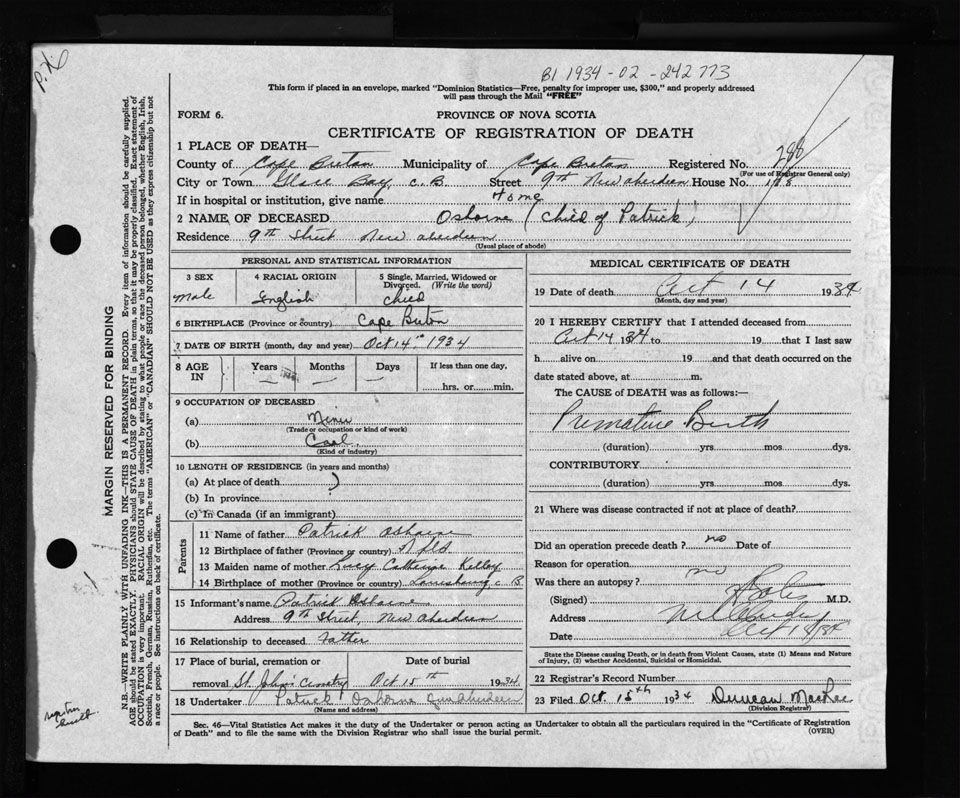 B1 1934-02-242773
This form if placed in an envelope, marked "Dominion Statistics—Free, penalty for improper use, $300," and properly addressed
will pass through the Mail "FREE"
FORM 6.
PROVINCE OF NOVA SCOTIA
CERTIFICATE OF REGISTRATION OF DEATH
1 PLACE OF DEATH—
County of Cape Breton Municipality of Cape Breton Registered No. 288
(For use of Registrar General only)
City or Town Glace Bay, C.B. Street 9th New Aberdeen House No. 128
If in hospital or institution, give name Home
2 NAME OF DECEASED Osborne (Child of Patrick)
Residence 9th Street New Aberdeen
(Usual place of abode)
PERSONAL AND STATISTICAL INFORMATION
3 SEX 4 RACIAL ORIGIN 5 Single, Married, Widowed or Divorced. (Write the word)
Male English Child
6 BIRTHPLACE (Province or country) Cape Breton
7 DATE OF BIRTH (month, day and year) Oct 14th 1934
8 AGE IN Years Months Days If less than one day,
hrs. or min.
9 OCCUPATION OF DECEASED
(a) Miner
(Trade or occupation or kind of work)
(b) Coal
(Kind of industry)
10 LENGTH OF RESIDENCE (in years and months)
(a) At place of death
(b) In province
(c) In Canada (if an immigrant)
Parents
11 Name of father Patrick Osborne
12 Birthplace of father (Province or country) Nfld.
13 Maiden name of mother Lucy Catherine Kelley
14 Birthplace of mother (Province or country) Louisbourg C B
15 Informant's name Patrick Osborne
Address 9th Street, New Aberdeen
16 Relationship to deceased Father
17 Place of burial, cremation or Date of burial
removal St. John's Cemetry Oct 15th 1934
18 Undertaker Patrick Osborne New Aberdeen
(Name and address)
MEDICAL CERTIFICATE OF DEATH
19 Date of death Oct 14 1934
(Month, day and year)
20 I HEREBY CERTIFY that I attended deceased from
Oct 14 1934 to 19 that I last saw
h alive on 19 and that death occurred on the
date stated above, at m.
The CAUSE OF DEATH was as follows:—
Premature Birth
(duration) yrs. mos. dys.
CONTRIBUTORY
(duration) yrs. mos. dys.
21 Where was disease contracted if not at place of death?
Did an operation precede death? no Date of
Reason for operation
Was there an autopsy? no
(Signed) M.D.
Address
Date Oct
State the Disease causing Death, or in death from Violent Causes, state (1) Means and Nature
of Injury, (2) whether Accidental, Suicidal or Homicidal.
22 Registrar's Record Number
23 Filed Oct. 15th 1934 Duncan MacRae
(Division Registrar)
Sec. 46—Vital Statistics Act makes it the duty of the Undertaker or person acting as Undertaker to obtain all the particulars required in the "Certificate of Registration
of Death" and to file the same with the Division Registrar who shall issue the burial permit.
(OVER)
MARGIN RESERVED FOR BINDING
N.B.—WRITE PLAINLY WITH UNFADING INK—THIS IS A PERMANENT RECORD. Every item of information should be carefully supplied.
AGE should be stated EXACTLY. PHYSICIANS should STATE CAUSE OF DEATH in plain terms, so that it may be properly classified. Exact statement of
OCCUPATION is very important. RACIAL ORIGIN will be described by stating to what people or race the deceased person belonged, whether English, Irish,
Scottish, French, German, Russian, Ruthenian, etc. The terms "AMERICAN" or "CANADIAN" SHOULD NOT BE USED as they express citizenship but not
a race or people. See instructions on back of certificate.